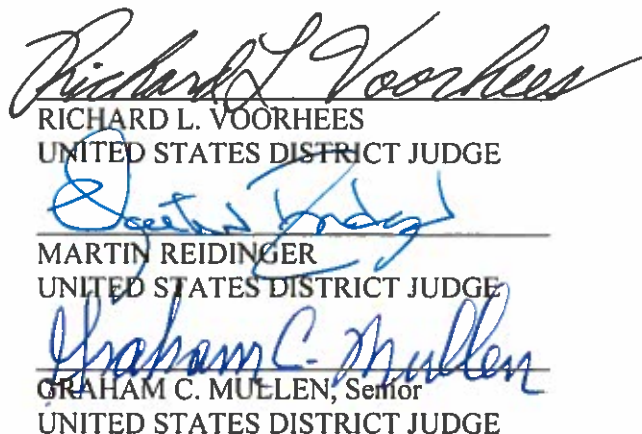 Richard L Voorhees
RICHARD L. VOORHEES
UNITED STATES DISTRICT JUDGE
MARTIN REIDINGER
UNITED STATES DISTRICT JUDGE
Graham C. Mullen
GRAHAM C. MULLEN, Senior
UNITED STATES DISTRICT JUDGE